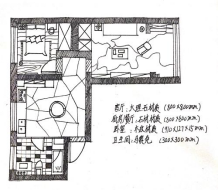 客厅、大理石铺装 (800×800mm)
厨房/餐厅、石材铺装 (300×600mm)
卧室：木板铺装 (910×127×15mm)
卫生间、马赛克 (300×300mm)